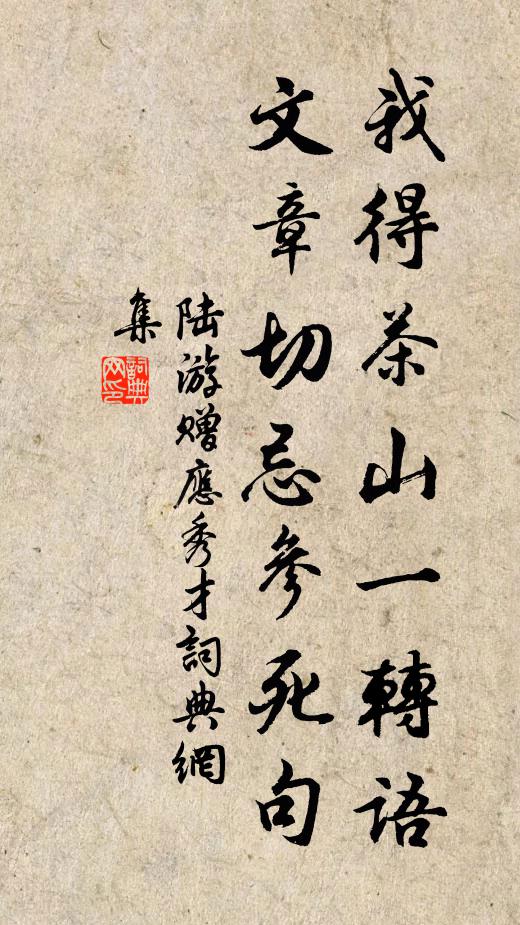 我得茶山一轉語
文章切忌參死句
陆游赠應秀才詞典網
集
詞典网印